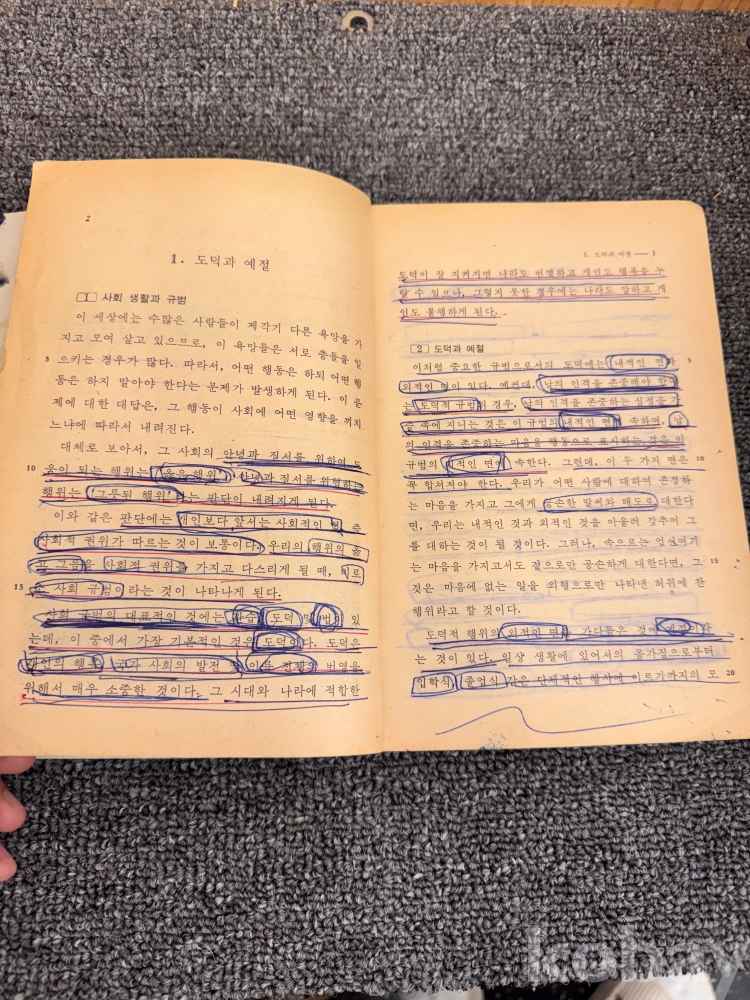 2
1. 도덕과 예절
1 사회 생활과 규범
이 세상에는 수많은 사람들이 제각기 다른 욕망을 가
지고 모여 살고 있으므로, 이 욕망들은 서로 충돌을 일
5 으키는 경우가 많다. 따라서, 어떤 행동은 하되 어떤 행
동은 하지 말아야 한다는 문제가 발생하게 된다. 이 문
제에 대한 대답은, 그 행동이 사회에 어떤 영향을 끼치
느냐에 따라서 내려진다.
대체로 보아서, 그 사회의 안녕과 질서를 위하여 도
10 움이 되는 행위는 '옳은 행위', 안녕과 질서를 위협하는
행위는 '그릇된 행위'라는 판단이 내려지게 된다.
이와 같은 판단에는 개인보다 앞서는 사회적인 힘, 즉
사회적 권위가 따르는 것이 보통이다. 우리의 행위의 옳
고 그름을 사회적 권위를 가지고 다스리게 될 때, 비로
15 소 사회 규범이라는 것이 나타나게 된다.
사회 규범의 대표적인 것에는 관습, 도덕 및 법이 있
는데, 이 중에서 가장 기본적인 것은 도덕이다. 도덕은
개인의 행복, 국가 사회의 발전 및 인류 전체의 번영을
위해서 매우 소중한 것이다. 그 시대와 나라에 적합한
1. 도덕과 예절 — 3
도덕이 잘 지켜지면 나라도 번영하고 개인도 행복을 누
릴 수 있으나, 그렇지 못한 경우에는 나라도 망하고 개
인도 불행하게 된다.
2 도덕과 예절
이처럼 중요한 규범으로서의 도덕에는 내적인 면과 5
외적인 면이 있다. 예컨대, 남의 인격을 존중해야 한다
는 도덕적 규범의 경우, 남의 인격을 존중하는 심정을 가
슴 속에 지니는 것은 이 규범의 내적인 면에 속하며, 남
의 인격을 존중하는 마음을 행동으로 표시하는 것은 이
규범의 외적인 면에 속한다. 그런데, 이 두 가지 면은 10
꼭 합쳐져야 한다. 우리가 어떤 사람에 대하여 존경하
는 마음을 가지고 그에게 공손한 말씨와 태도로 대한다
면, 우리는 내적인 것과 외적인 것을 아울러 갖추어 그
를 대하는 것이 될 것이다. 그러나, 속으로는 업신여기
는 마음을 가지고서도 겉으로만 공손하게 대한다면, 그 15
것은 마음에 없는 일을 외형으로만 나타낸 허위에 찬
행위라고 할 것이다.
도덕적 행위의 외적인 면을 가다듬은 것에 예절이라
는 것이 있다. 일상 생활에 있어서의 몸가짐으로부터
입학식, 졸업식 같은 단체적인 행사에 이르기까지의 모 20